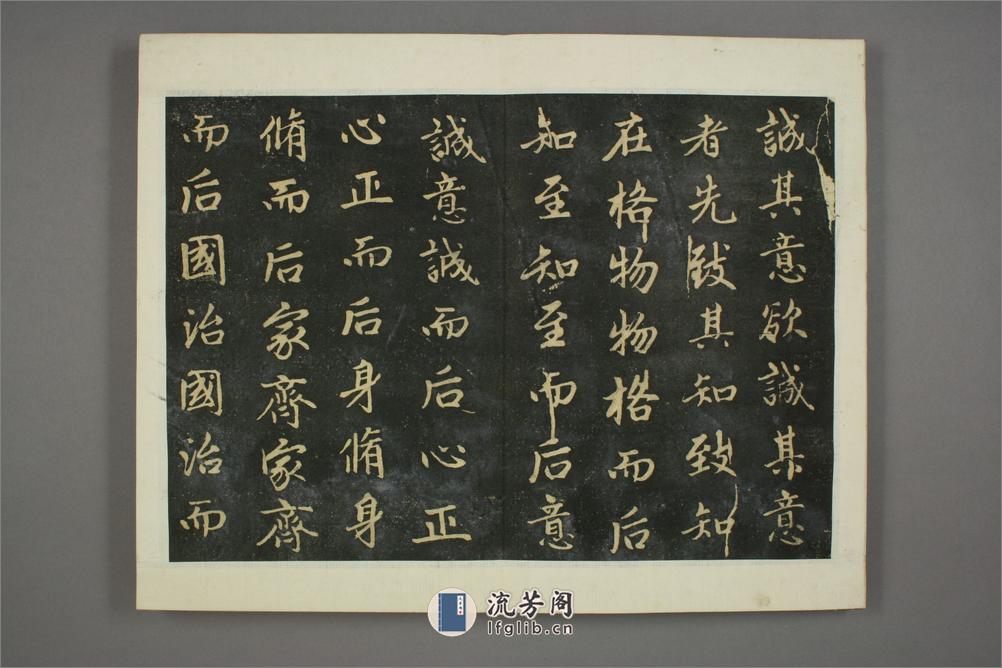 誠其意欲誠其意
者先致其知致知
在格物物格而后
知至知至而后意
誠意誠而后心正
心正而后身脩身
脩而后家齊家齊
而后國治國治而
流芳阁
lfglib.cn